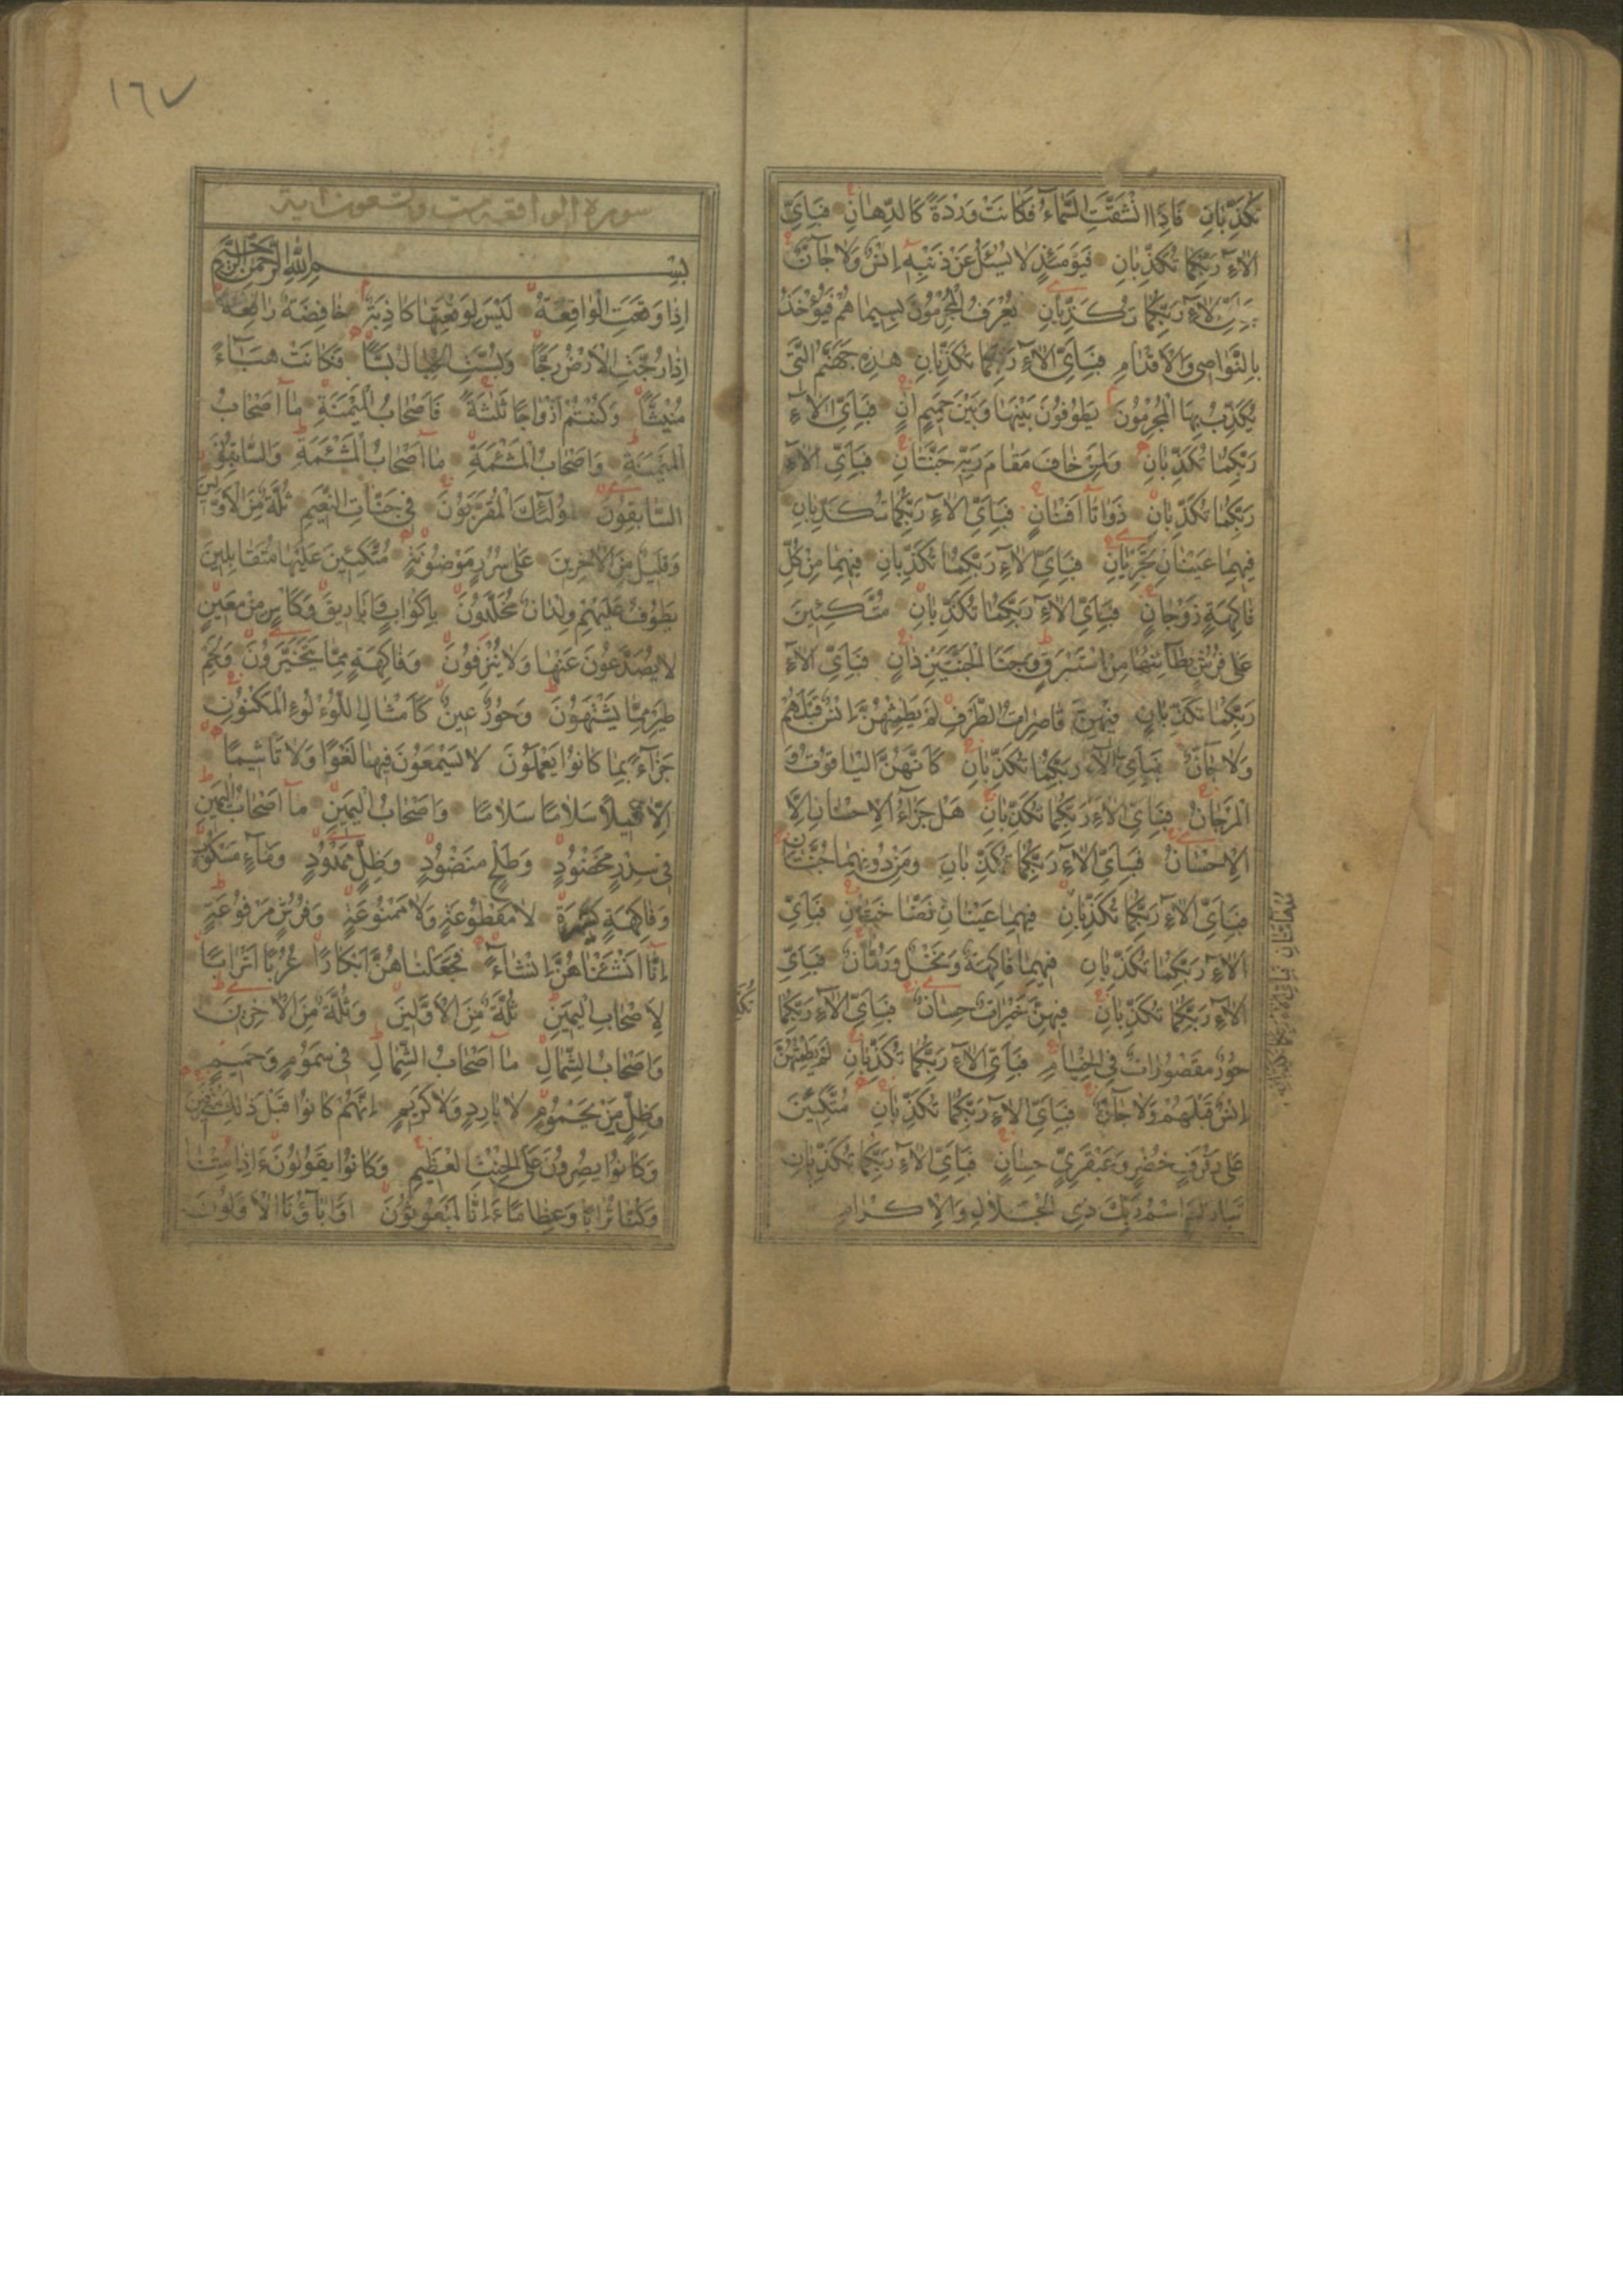 تُكَذِّبَانِ فَاِذَا انْشَقَّتِ السَّمَاۤءُ فَكَانَتْ وَرْدَةً كَالدِّهَانِ فَبِاَيِّ
اٰلَاۤءِ رَبِّكُمَا تُكَذِّبَانِ فَيَوْمَئِذٍ لَا يُسْئَلُ عَنْ ذَنْبِهٖۤ اِنْسٌ وَلَا جَاۤنٌّ
فَبِاَيِّ اٰلَاۤءِ رَبِّكُمَا تُكَذِّبَانِ يُعْرَفُ الْمُجْرِمُونَ بِسِيمَاهُمْ فَيُؤْخَذُ
بِالنَّوَاصِي وَالْاَقْدَامِ فَبِاَيِّ اٰلَاۤءِ رَبِّكُمَا تُكَذِّبَانِ هٰذِهٖ جَهَنَّمُ الَّتِي
يُكَذِّبُ بِهَا الْمُجْرِمُونَ يَطُوفُونَ بَيْنَهَا وَبَيْنَ حَمِيمٍ اٰنٍ فَبِاَيِّ اٰلَاۤءِ
رَبِّكُمَا تُكَذِّبَانِ وَلِمَنْ خَافَ مَقَامَ رَبِّهٖ جَنَّتَانِ فَبِاَيِّ اٰلَاۤءِ
رَبِّكُمَا تُكَذِّبَانِ ذَوَاتَاۤ اَفْنَانٍ فَبِاَيِّ اٰلَاۤءِ رَبِّكُمَا تُكَذِّبَانِ
فِيهِمَا عَيْنَانِ تَجْرِيَانِ فَبِاَيِّ اٰلَاۤءِ رَبِّكُمَا تُكَذِّبَانِ فِيهِمَا مِنْ كُلِّ
فَاكِهَةٍ زَوْجَانِ فَبِاَيِّ اٰلَاۤءِ رَبِّكُمَا تُكَذِّبَانِ مُتَّكِئِينَ
عَلٰى فُرُشٍ بَطَاۤئِنُهَا مِنْ اِسْتَبْرَقٍ وَجَنَا الْجَنَّتَيْنِ دَانٍ فَبِاَيِّ اٰلَاۤءِ
رَبِّكُمَا تُكَذِّبَانِ فِيهِنَّ قَاصِرَاتُ الطَّرْفِ لَمْ يَطْمِثْهُنَّ اِنْسٌ قَبْلَهُمْ
وَلَا جَاۤنٌّ فَبِاَيِّ اٰلَاۤءِ رَبِّكُمَا تُكَذِّبَانِ كَاَنَّهُنَّ الْيَاقُوتُ وَ
الْمَرْجَانُ فَبِاَيِّ اٰلَاۤءِ رَبِّكُمَا تُكَذِّبَانِ هَلْ جَزَاۤءُ الْاِحْسَانِ اِلَّا
الْاِحْسَانُ فَبِاَيِّ اٰلَاۤءِ رَبِّكُمَا تُكَذِّبَانِ وَمِنْ دُونِهِمَا جَنَّتَانِ
فَبِاَيِّ اٰلَاۤءِ رَبِّكُمَا تُكَذِّبَانِ فِيهِمَا عَيْنَانِ نَضَّاخَتَانِ فَبِاَيِّ
اٰلَاۤءِ رَبِّكُمَا تُكَذِّبَانِ فِيهِمَا فَاكِهَةٌ وَنَخْلٌ وَرُمَّانٌ فَبِاَيِّ
اٰلَاۤءِ رَبِّكُمَا تُكَذِّبَانِ فِيهِنَّ خَيْرَاتٌ حِسَانٌ فَبِاَيِّ اٰلَاۤءِ رَبِّكُمَا
حُورٌ مَقْصُورَاتٌ فِي الْخِيَامِ فَبِاَيِّ اٰلَاۤءِ رَبِّكُمَا تُكَذِّبَانِ لَمْ يَطْمِثْهُنَّ
اِنْسٌ قَبْلَهُمْ وَلَا جَاۤنٌّ فَبِاَيِّ اٰلَاۤءِ رَبِّكُمَا تُكَذِّبَانِ مُتَّكِئِينَ
عَلٰى رَفْرَفٍ خُضْرٍ وَعَبْقَرِيٍّ حِسَانٍ فَبِاَيِّ اٰلَاۤءِ رَبِّكُمَا تُكَذِّبَانِ
تَبَارَكَ اسْمُ رَبِّكَ ذِي الْجَلَالِ وَالْاِكْرَامِ
١٦٧
سورة الواقعة ست وتسعون اية
بِسْمِ اللّٰهِ الرَّحْمٰنِ الرَّحِيمِ
اِذَا وَقَعَتِ الْوَاقِعَةُ لَيْسَ لِوَقْعَتِهَا كَاذِبَةٌ خَافِضَةٌ رَافِعَةٌ
اِذَا رُجَّتِ الْاَرْضُ رَجًّا وَبُسَّتِ الْجِبَالُ بَسًّا فَكَانَتْ هَبَاۤءً
مُنْبَثًّا وَكُنْتُمْ اَزْوَاجًا ثَلٰثَةً فَاَصْحَابُ الْمَيْمَنَةِ مَاۤ اَصْحَابُ
الْمَيْمَنَةِ وَاَصْحَابُ الْمَشْئَمَةِ مَاۤ اَصْحَابُ الْمَشْئَمَةِ وَالسَّابِقُونَ
السَّابِقُونَ اُولٰۤئِكَ الْمُقَرَّبُونَ فِي جَنَّاتِ النَّعِيمِ ثُلَّةٌ مِنَ الْاَوَّلِينَ
وَقَلِيلٌ مِنَ الْاٰخِرِينَ عَلٰى سُرُرٍ مَوْضُونَةٍ مُتَّكِئِينَ عَلَيْهَا مُتَقَابِلِينَ
يَطُوفُ عَلَيْهِمْ وِلْدَانٌ مُخَلَّدُونَ بِاَكْوَابٍ وَاَبَارِيقَ وَكَاْسٍ مِنْ مَعِينٍ
لَا يُصَدَّعُونَ عَنْهَا وَلَا يُنْزِفُونَ وَفَاكِهَةٍ مِمَّا يَتَخَيَّرُونَ وَلَحْمِ
طَيْرٍ مِمَّا يَشْتَهُونَ وَحُورٌ عِينٌ كَاَمْثَالِ اللُّؤْلُؤِ الْمَكْنُونِ
جَزَاۤءً بِمَا كَانُوا يَعْمَلُونَ لَا يَسْمَعُونَ فِيهَا لَغْوًا وَلَا تَاْثِيمًا
اِلَّا قِيلًا سَلَامًا سَلَامًا وَاَصْحَابُ الْيَمِينِ مَاۤ اَصْحَابُ الْيَمِينِ
فِي سِدْرٍ مَخْضُودٍ وَطَلْحٍ مَنْضُودٍ وَظِلٍّ مَمْدُودٍ وَمَاۤءٍ مَسْكُوبٍ
وَفَاكِهَةٍ كَثِيرَةٍ لَا مَقْطُوعَةٍ وَلَا مَمْنُوعَةٍ وَفُرُشٍ مَرْفُوعَةٍ
اِنَّاۤ اَنْشَئْنَاهُنَّ اِنْشَاۤءً فَجَعَلْنَاهُنَّ اَبْكَارًا عُرُبًا اَتْرَابًا
لِاَصْحَابِ الْيَمِينِ ثُلَّةٌ مِنَ الْاَوَّلِينَ وَثُلَّةٌ مِنَ الْاٰخِرِينَ
وَاَصْحَابُ الشِّمَالِ مَاۤ اَصْحَابُ الشِّمَالِ فِي سَمُومٍ وَحَمِيمٍ
وَظِلٍّ مِنْ يَحْمُومٍ لَا بَارِدٍ وَلَا كَرِيمٍ اِنَّهُمْ كَانُوا قَبْلَ ذٰلِكَ مُتْرَفِينَ
وَكَانُوا يُصِرُّونَ عَلَى الْحِنْثِ الْعَظِيمِ وَكَانُوا يَقُولُونَ ءَاِذَا مِتْنَا
وَكُنَّا تُرَابًا وَعِظَامًا ءَاِنَّا لَمَبْعُوثُونَ اَوَ اٰبَاۤؤُنَا الْاَوَّلُونَ